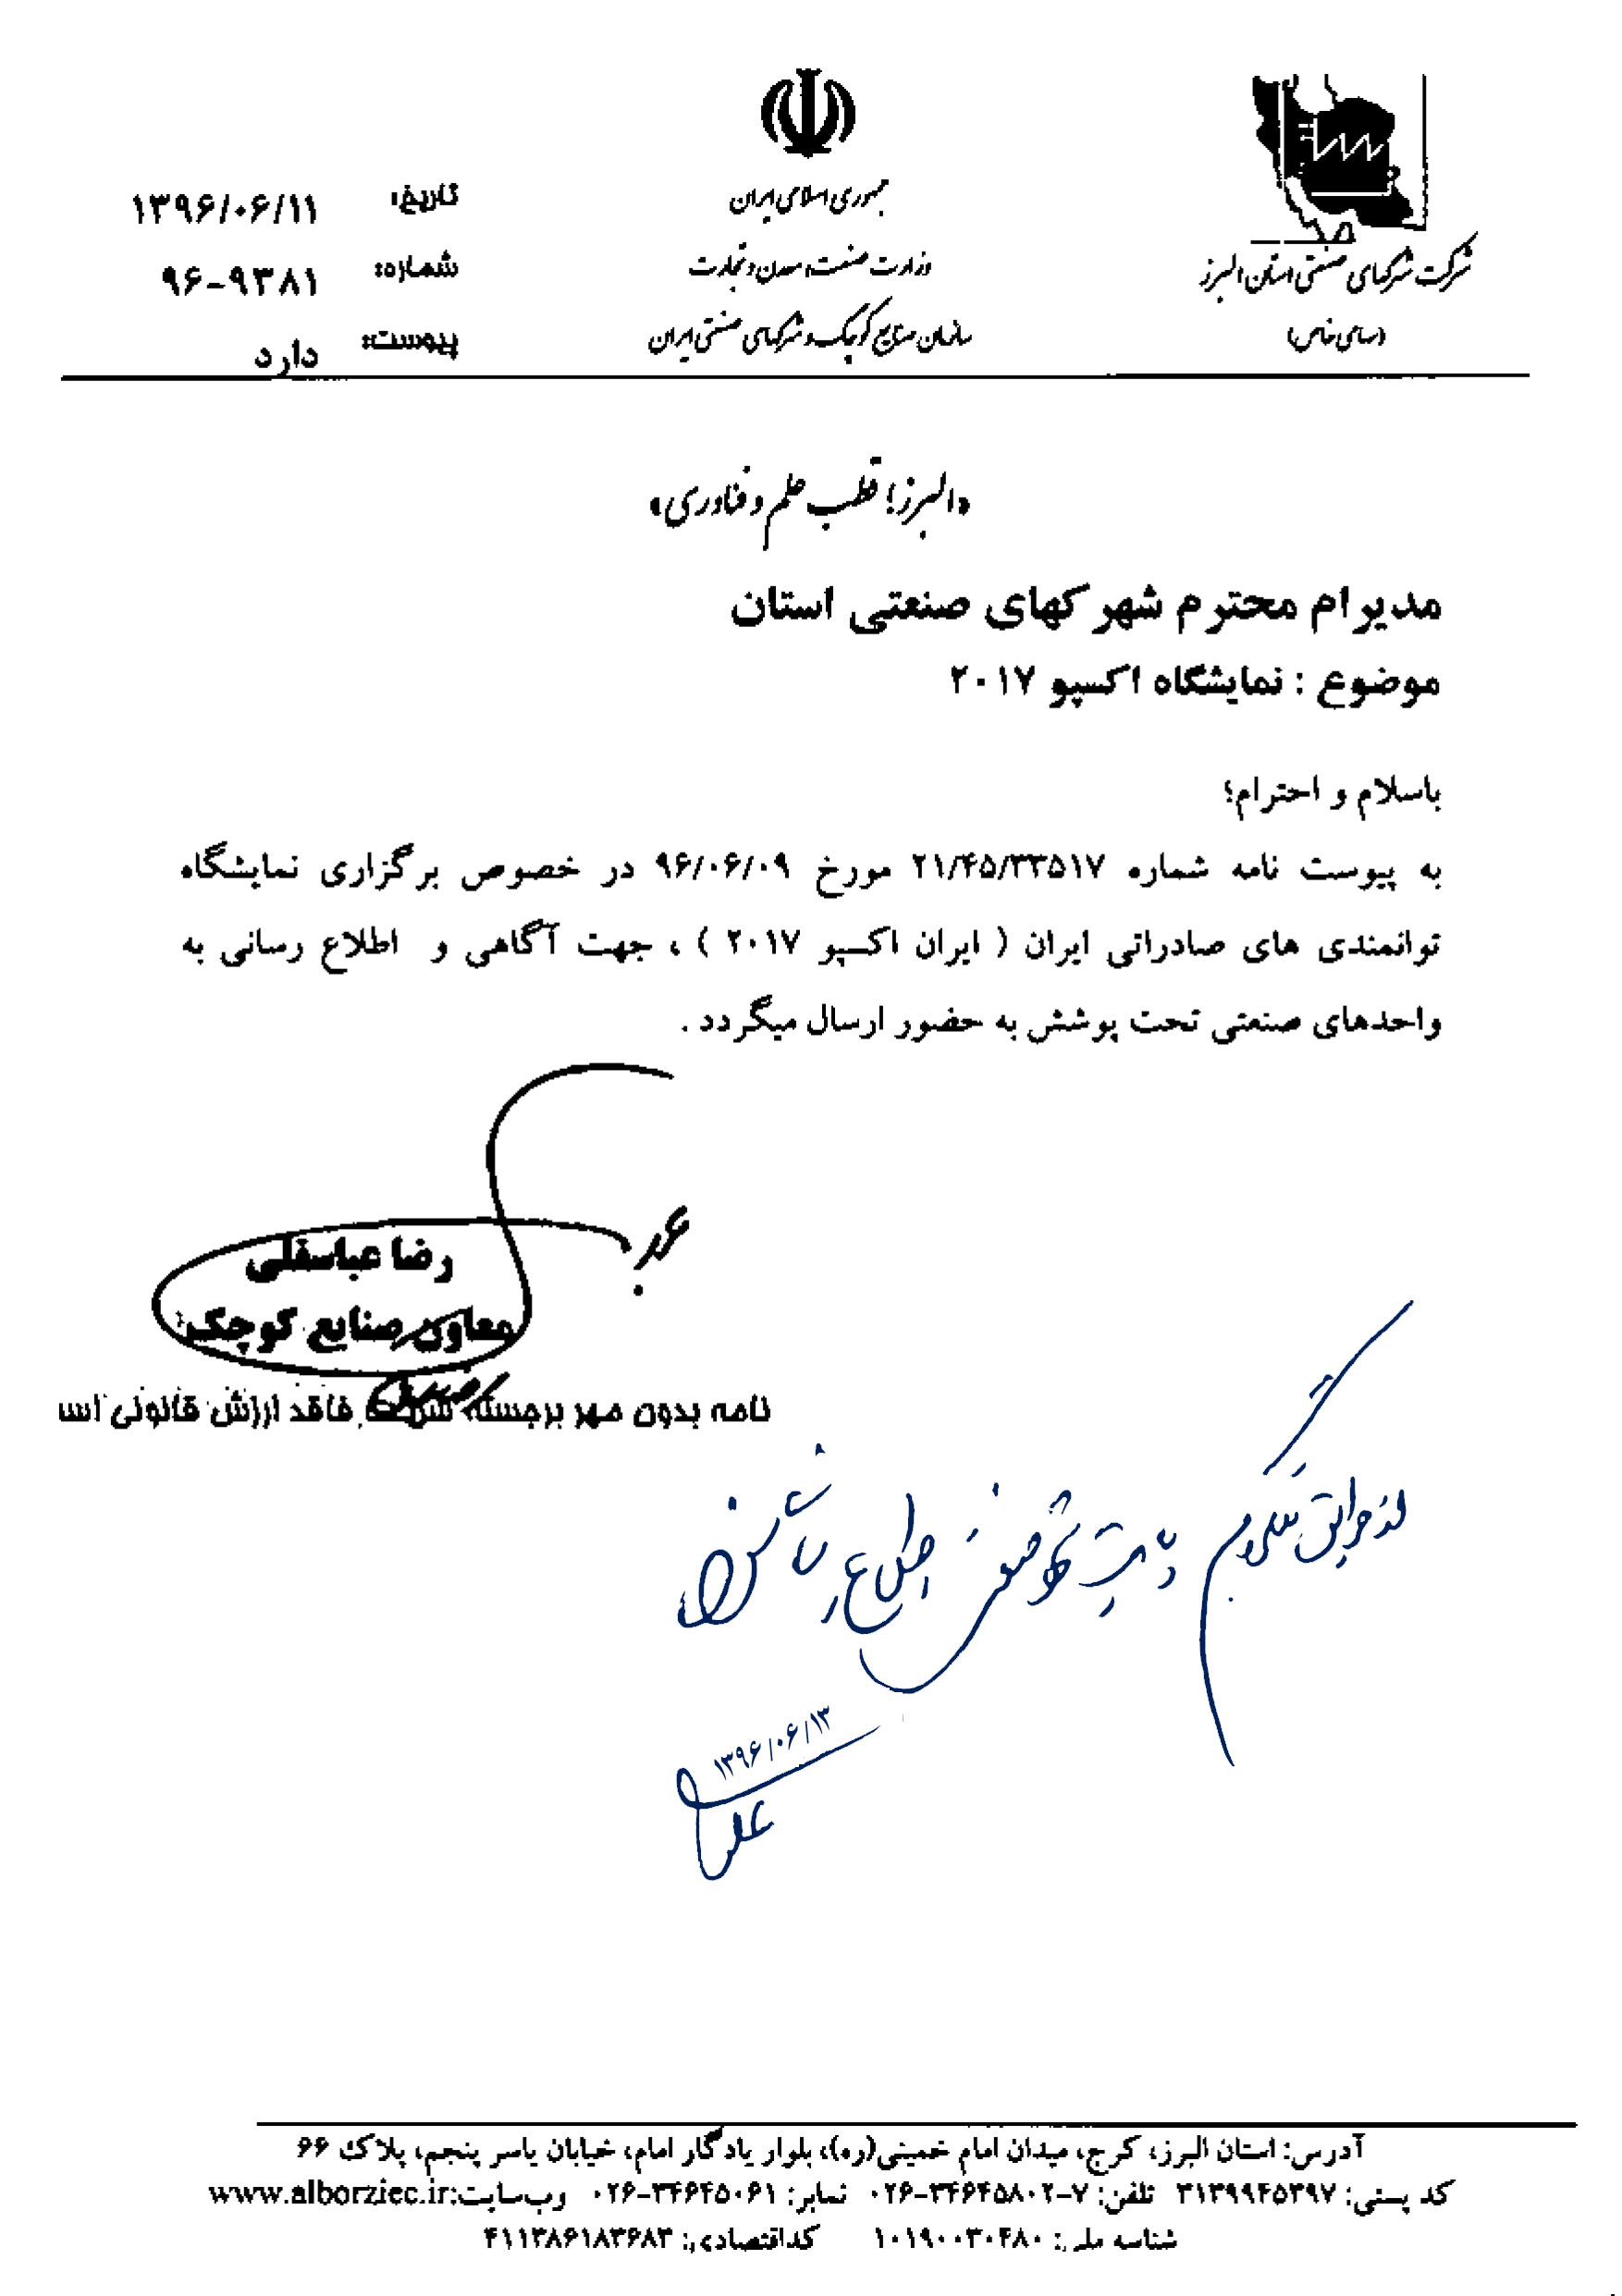 جمهوری اسلامی ایران
وزارت صنعت، معدن و تجارت
سازمان صنایع کوچک و شهرکهای صنعتی ایران
شرکت شهرکهای صنعتی استان البرز
(سهامی خاص)
تاریخ: ۱۳۹۶/۰۶/۱۱
شماره: ۹۶-۹۳۸۱
پیوست: دارد
«البرز؛ قطب علم و فناوری»
مدیرام محترم شهرکهای صنعتی استان
موضوع : نمایشگاه اکسپو ۲۰۱۷
باسلام و احترام؛
به پیوست نامه شماره ۲۱/۴۵/۳۳۵۱۷ مورخ ۹۶/۰۶/۰۹ در خصوص برگزاری نمایشگاه
توانمندی های صادراتی ایران ( ایران اکسپو ۲۰۱۷ ) ، جهت آگاهی و اطلاع رسانی به
واحدهای صنعتی تحت پوشش به حضور ارسال میگردد .
رضا عباسقلی
معاون صنایع کوچک
نامه بدون مهر برجسته شرکت فاقد ارزش قانونی اس
صنعتی اطلاع
۱۳۹۶/۰۶/۱۳
آدرس: استان البرز، کرج، میدان امام خمینی(ره)، بلوار یادگار امام، خیابان یاسر پنجم، پلاک ۶۶
کد پستی: ۳۱۳۹۹۴۵۳۹۷ تلفن: ۷-۰۲۶-۳۴۶۴۵۸۰۲ نمابر: ۰۲۶-۳۴۶۴۵۰۶۱ وب‌سایت:www.alborziec.ir
شناسه ملی: ۱۰۱۹۰۰۳۰۴۸۰ کداقتصادی: ۴۱۱۳۸۶۱۸۳۶۸۳